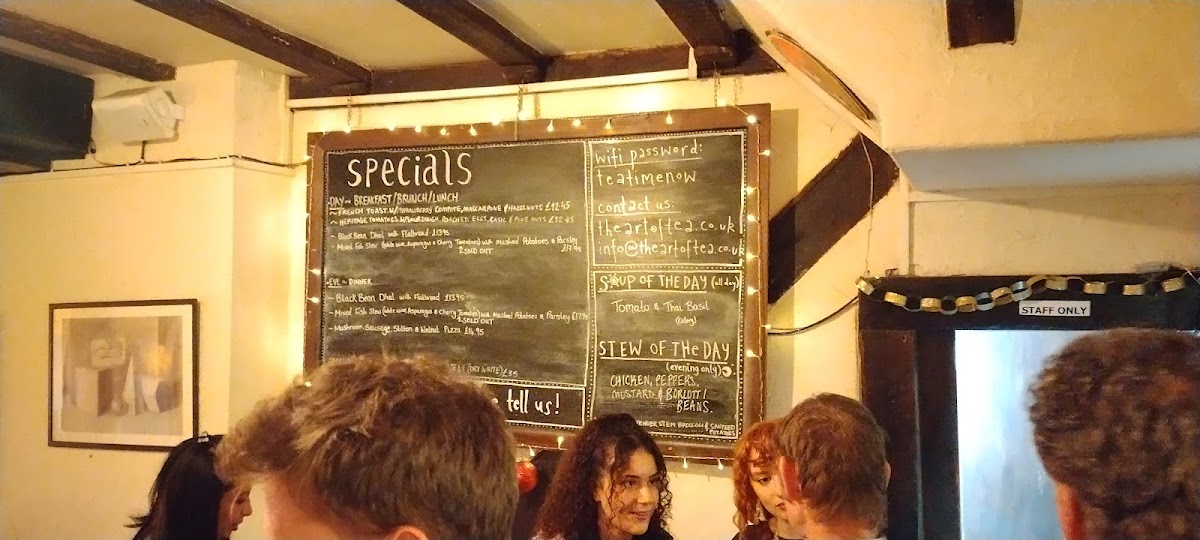 Specials
DAY ~ BREAKFAST/BRUNCH/LUNCH
~ FRENCH TOAST W/ STRAWBERRY COMPOTE, MASCARPONE & HAZELNUTS £12.45
~ HERITAGE TOMATOES, SOURDOUGH, POACHED EGGS, BASIL & PINE NUTS
~ Black Bean Dhal with Flatbread £13.95
~ Mixed Fish Stew (White wine, Asparagus & Cherry Tomatoes) with Mashed Potatoes & Parsley
SOLD OUT
EVE ~ DINNER
~ Black Bean Dhal with Flatbread £13.95
~ Mixed Fish Stew (White wine, Asparagus & Cherry Tomatoes) with Mashed Potatoes & Parsley
SOLD OUT
~ Mushroom, Sausage, Stilton & Walnut Pizza £14.95
(DRY WHITE) £35
tell us!
wifi password:
teatimenow
contact us:
theartoftea.co.uk
info@theartoftea.co.uk
SOUP OF THE DAY (all day)
Tomato & Thai Basil
(Celery)
STEW OF THE DAY
(evening only)
CHICKEN, PEPPERS,
MUSTARD & BORLOTTI
BEANS.
TENDERSTEM BROCCOLI & SAUTEED
POTATOES
STAFF ONLY